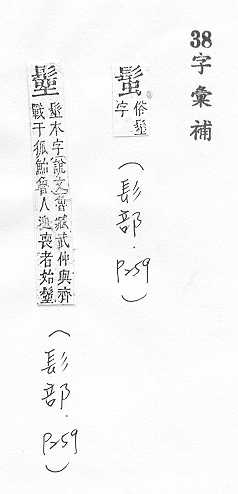 38字彙補
俗髽
字
(髟部.P259)
髽本字說文魯臧武仲與齊
戰于狐鮐魯人迎喪者始髽
(髟部.P259)